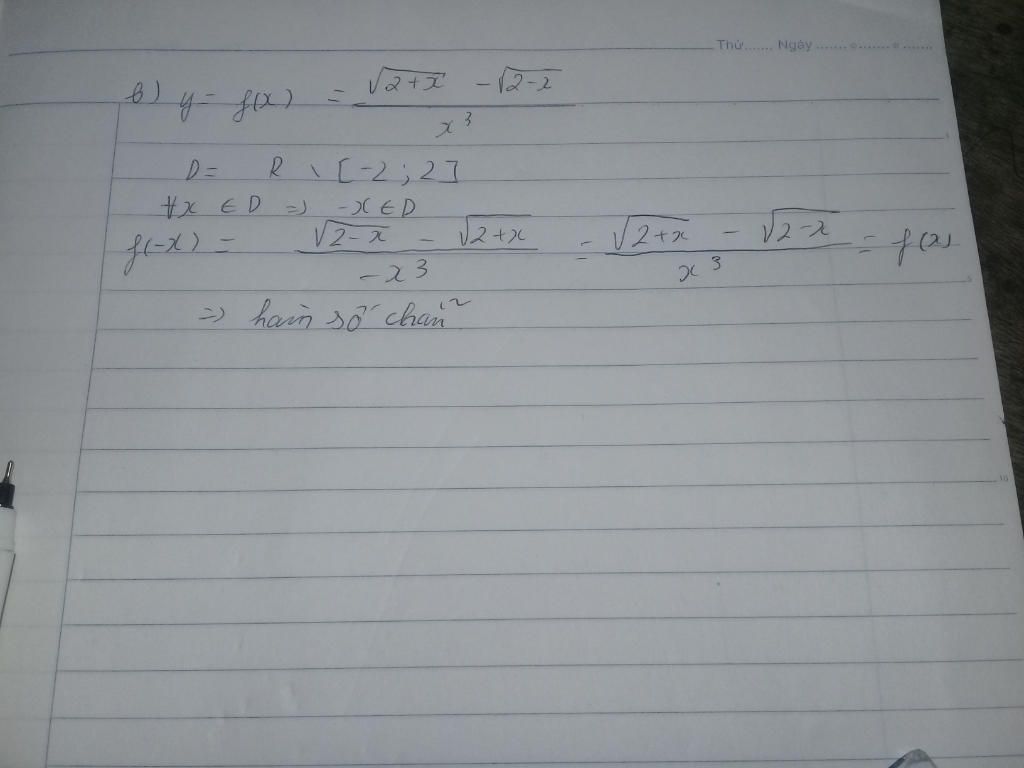 Thứ....... Ngày ....... ....... .......
b) y = f(x) = \frac{\sqrt{2+x} - \sqrt{2-x}}{x^3}
D = R \ [-2 ; 2]
∀x ∈ D => -x ∈ D
f(-x) = \frac{\sqrt{2-x} - \sqrt{2+x}}{-x^3} = \frac{\sqrt{2+x} - \sqrt{2-x}}{x^3} = f(x)
=> hàm số chẵn
5
10